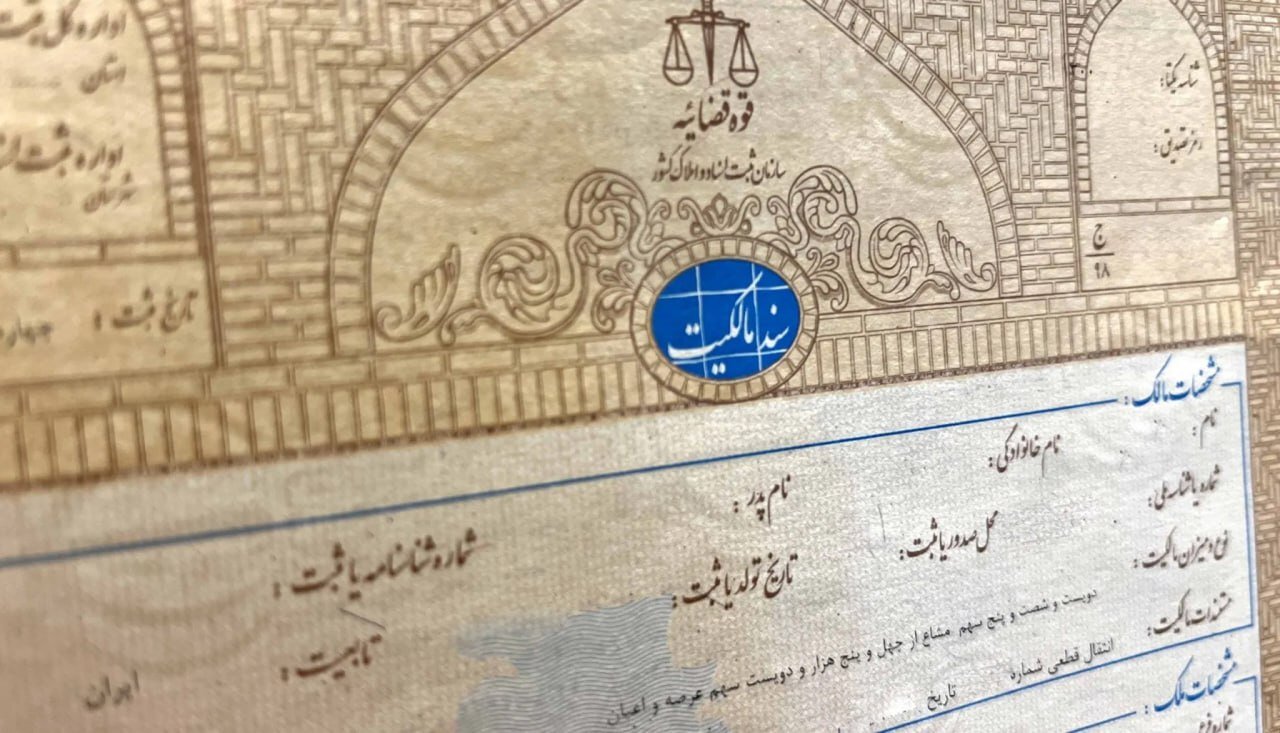 قوه قضائیه
سازمان ثبت اسناد و املاک کشور
سند مالکیت
شناسه یکتا:
رمز تصدیق:
ج
۹۸
اداره کل ثبت
استان
اداره ثبت
شهرستان
تاریخ ثبت :
مشخصات مالک :
نام : نام خانوادگی : نام پدر : شماره شناسنامه یا ثبت :
شماره یا شناسه ملی : محل صدور یا ثبت : تاریخ تولد یا ثبت : تابعیت : ایران
نوع و میزان مالکیت : دویست و شصت و پنج سهم مشاع از چهل و پنج هزار و دویست سهم عرصه و اعیان
مستندات مالکیت : انتقال قطعی شماره تاریخ
مشخصات ملک :
شماره فرعی